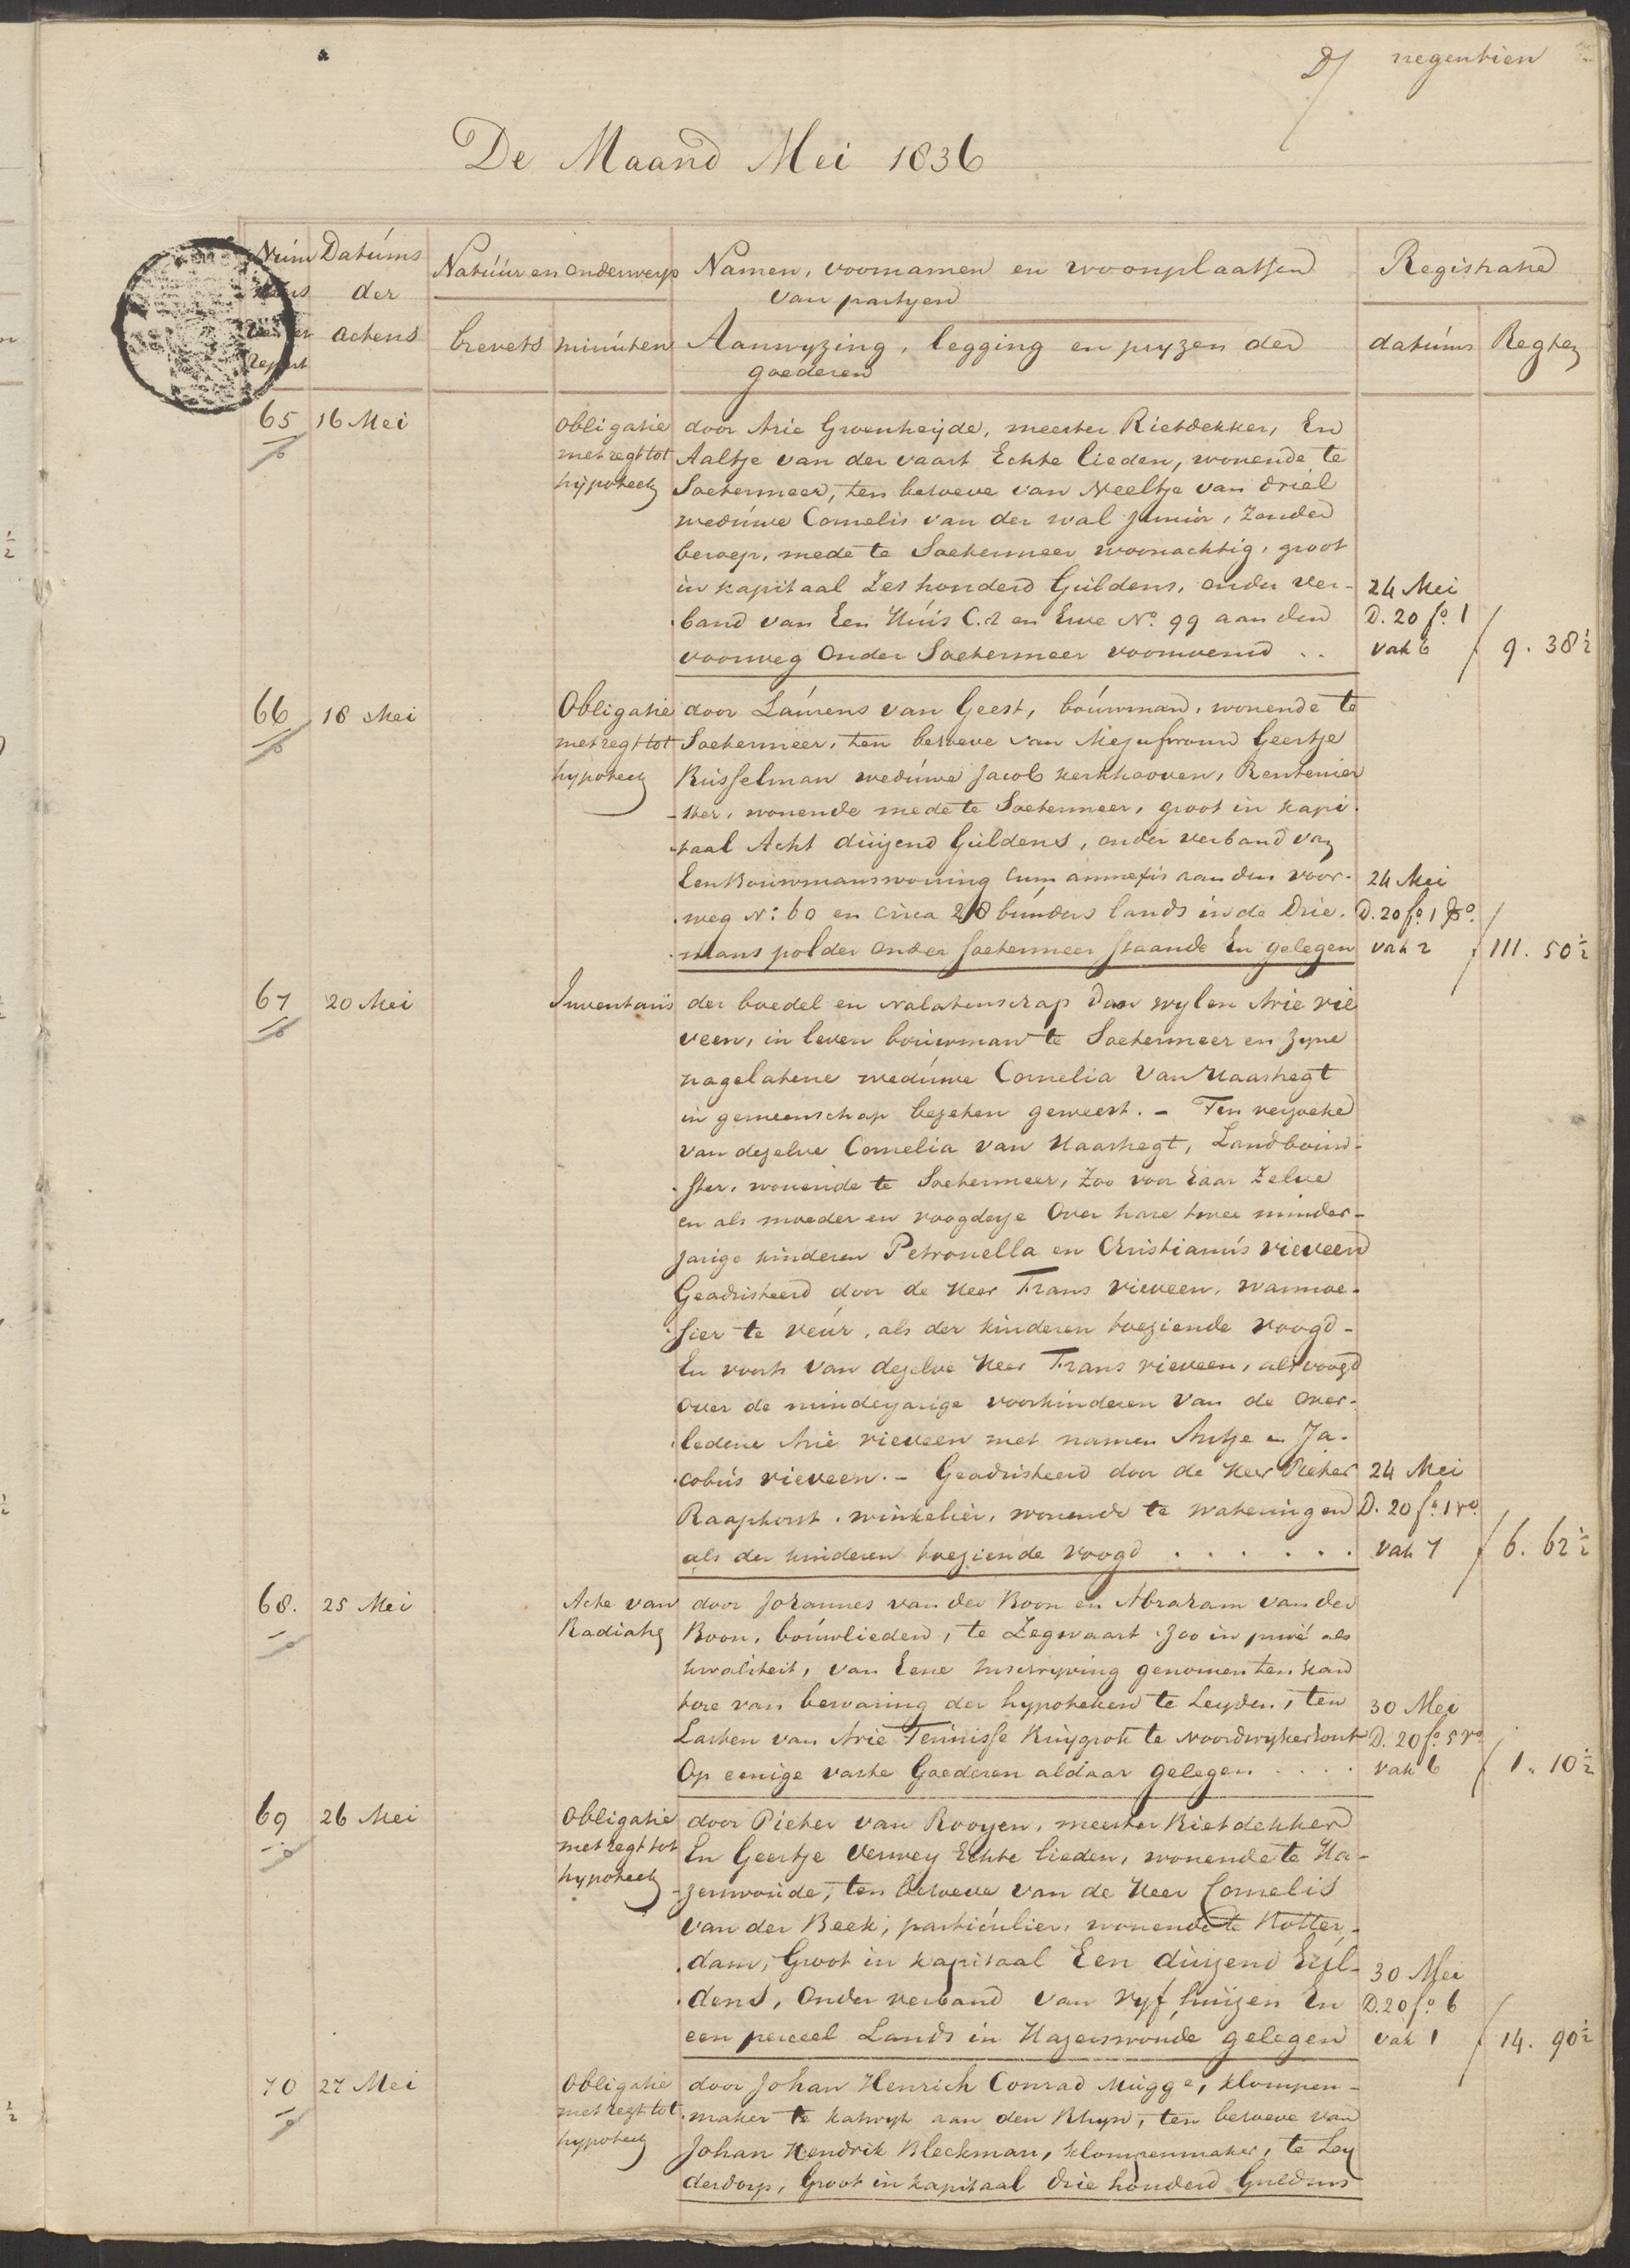 negentien
De Maand Mei 1836
Num Datúms Natúúr en onderwerp Namen, voornamen en woonplaatsen Registratie
der van partyen
actens brevets minúten Aanwyzing, legging en pryzen der datúms Regten
goederen
65 16 Mei obligatie door Arie Groenheijde, meester Rietdekker, En
met regt tot Aaltje van der vaart Echte lieden, wonende te
hijpotheek Soetermeer, ten behoeve van Neeltje van driel
wedúwe Cornelis van der wal junior, zonder
beroep, mede te Soetermeer woonachtig, groot
in kapitaal Zes honderd Guldens, onder ver- 24 Mei
band van Een Húis C.A en Erve No. 99 aan den D. 20 fo. 1
voorweg Onder Soetermeer voornoemd .. vak 6 9. 38½
66 18 Mei Obligatie door Laúrens van Geest, boúwman, wonende te
met regt tot Soetermeer, ten behoeve van Mejufvrouw Geertje
hypotheek Russelman wedúwe Jacob Kerkhooven, Rentenier
-ster, wonende mede te Soetermeer, groot in kapi-
taal Acht duizend Guldens, onder verband van
Een Bouwmanswoning cum annexis aan den voor- 24 Mei
weg No: 60 en circa 28 búnders lands in de Drie- D. 20 fo. 1 vo.
mans polder onder Soetermeer staande En gelegen vak 2 111. 50½
67 20 Mei Inventaris der boedel en nalatenschap door wylen Arie vie
veen, in leven bouwman te Soetermeer en zyne
nagelatene wedúwe Cornelia Van Haastregt
in gemeenschap bezeten geweest. - Ten verzoeke
van dezelve Cornelia van Haastregt, Landbouw-
ster, wonende te Soetermeer, Zoo voor haar Zelve
en als moeder en voogdesse Over hare twee minder-
jarige kinderen Petronella en Christianús vieveen
Geadsisteerd door de Heer Frans vieveen, warmoe-
sier te veúr, als der kinderen toeziende voogd -
En voorts van dezelve Heer Frans vieveen, als voogd
over de minderjarige voorkinderen van de over-
ledene Arie vieveen met namen Antje en Ja-
cobús vieveen. - Geadsisteerd door de Heer Pieter 24 Mei
Raaphorst, winkelier, wonende te wateringen D. 20 fo. 1 vo.
als der kinderen toeziende voogd . . . . . . vak 7 6. 62½
68. 25 Mei Acte van door Johannes van der Boon en Abraham van der
Radiatie Boon, boúwlieden, te Zegwaart, zoo in privé als
kwaliteit, van Eene inschryving genomen ten kan
tore van bewaring der hypotheken te Leyden, ten 30 Mei
Lasten van Arie Teúnisse Ruygrok te Noordwykerhout D. 20 fo. 5 vo
Op eenige vaste Goederen aldaar gelegen .... vak 6 1. 10½
69 26 Mei Obligatie door Pieter van Rooyen, meester Rietdekker
met regt tot En Geertje Verwey Echte lieden, wonende te Ha-
hypotheek zerswoúde, ten behoeve van de Heer Cornelis
van der Beek, particúlier, wonende te Rotter-
dam, Groot in kapitaal Een duizend Gul- 30 Mei
dens, Onder verband van Vyf huizen En D. 20 fo. 6
een perceel Lands in Hazerswoude gelegen vak 1 14. 90½
70 27 Mei Obligatie door Johan Henrich Conrad Mugge, klompen-
met regt tot maker te katwyk aan den Rhyn, ten behoeve van
hypotheek Johan Hendrik Bleckman, klompenmaker, te Ley
derdorp, Groot in kapitaal drie honderd Guldens